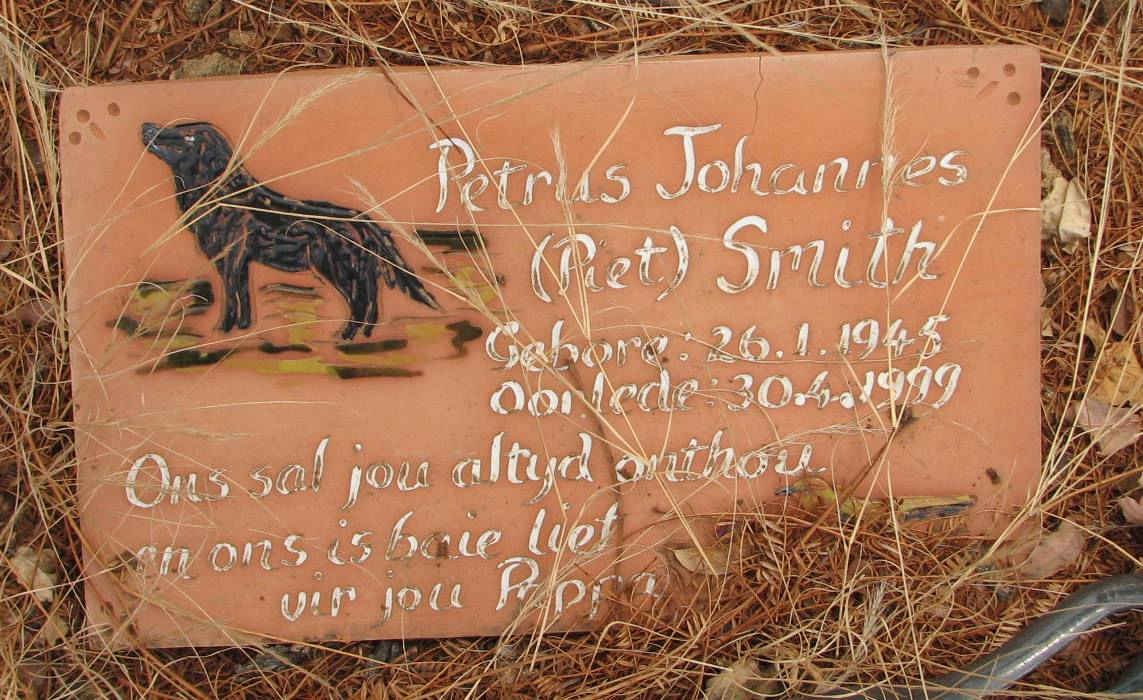 Petrus Johannes
(Piet) Smith
Gebore: 26.1.1945
Oorlede: 30.4.1999
Ons sal jou altyd onthou
en ons is baie lief
vir jou Pappa